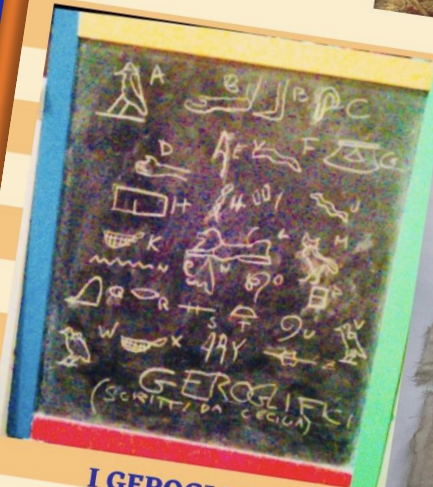 A B B C
D E F G
H I J
K L M
N N O P
Q R S T U V
W X Y Z
GEROGLIFICI
(SCRITTI DA CECILIA)
I GEROG